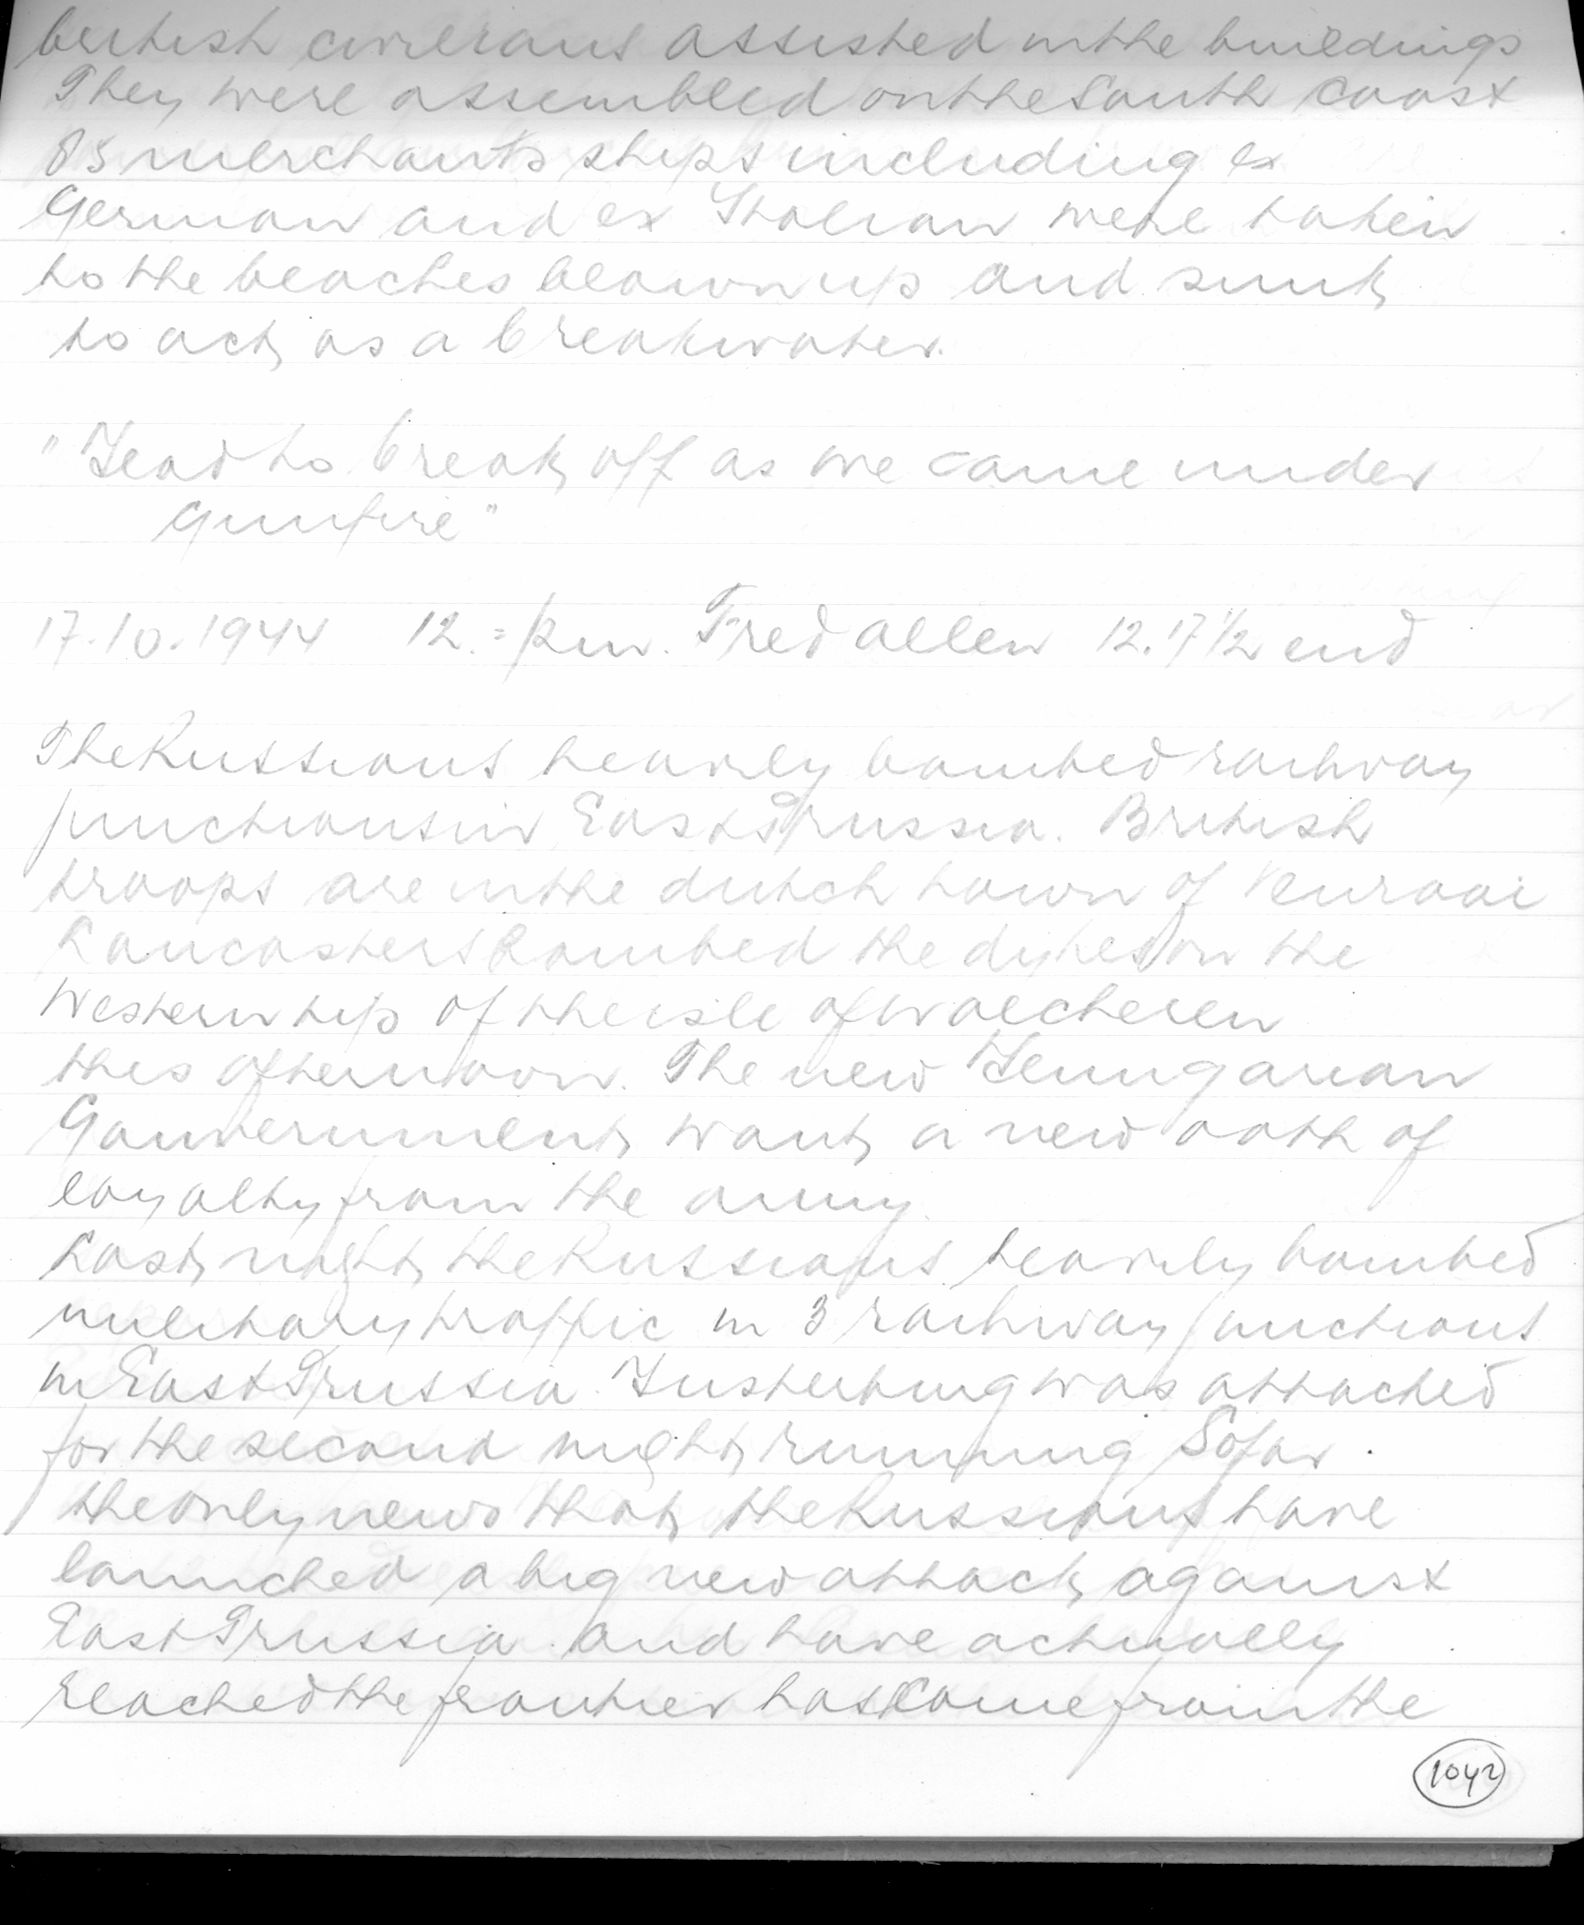 british civilians assisted in the buildings
They were assembled on the South Coast
85 merchants ships including ex
German and ex Italian were taken
to the beaches blown up and sunk
to act as a breakwater.
"Had to break off as we came under
gunfire"
17.10.1944 12.= pm. Fred allen 12.17 1/2 end
The Russians heavily bombed railway
junctions in East Prussia. British
troops are in the dutch town of Venraai
Lancasters bombed the dykes on the
Western tip of the isle of Walcheren
this afternoon. The new Hungarian
Gouvernment want a new oath of
loyalty from the army.
Last night the Russians heavily bombed
military traffic in 3 railway junctions
in East Prussia. Insterburg was attacked
for the second night running Sofar
the only news that the Russians have
launched a big new attack against
East Prussia and have actually
reached the frontier has come from the
1042